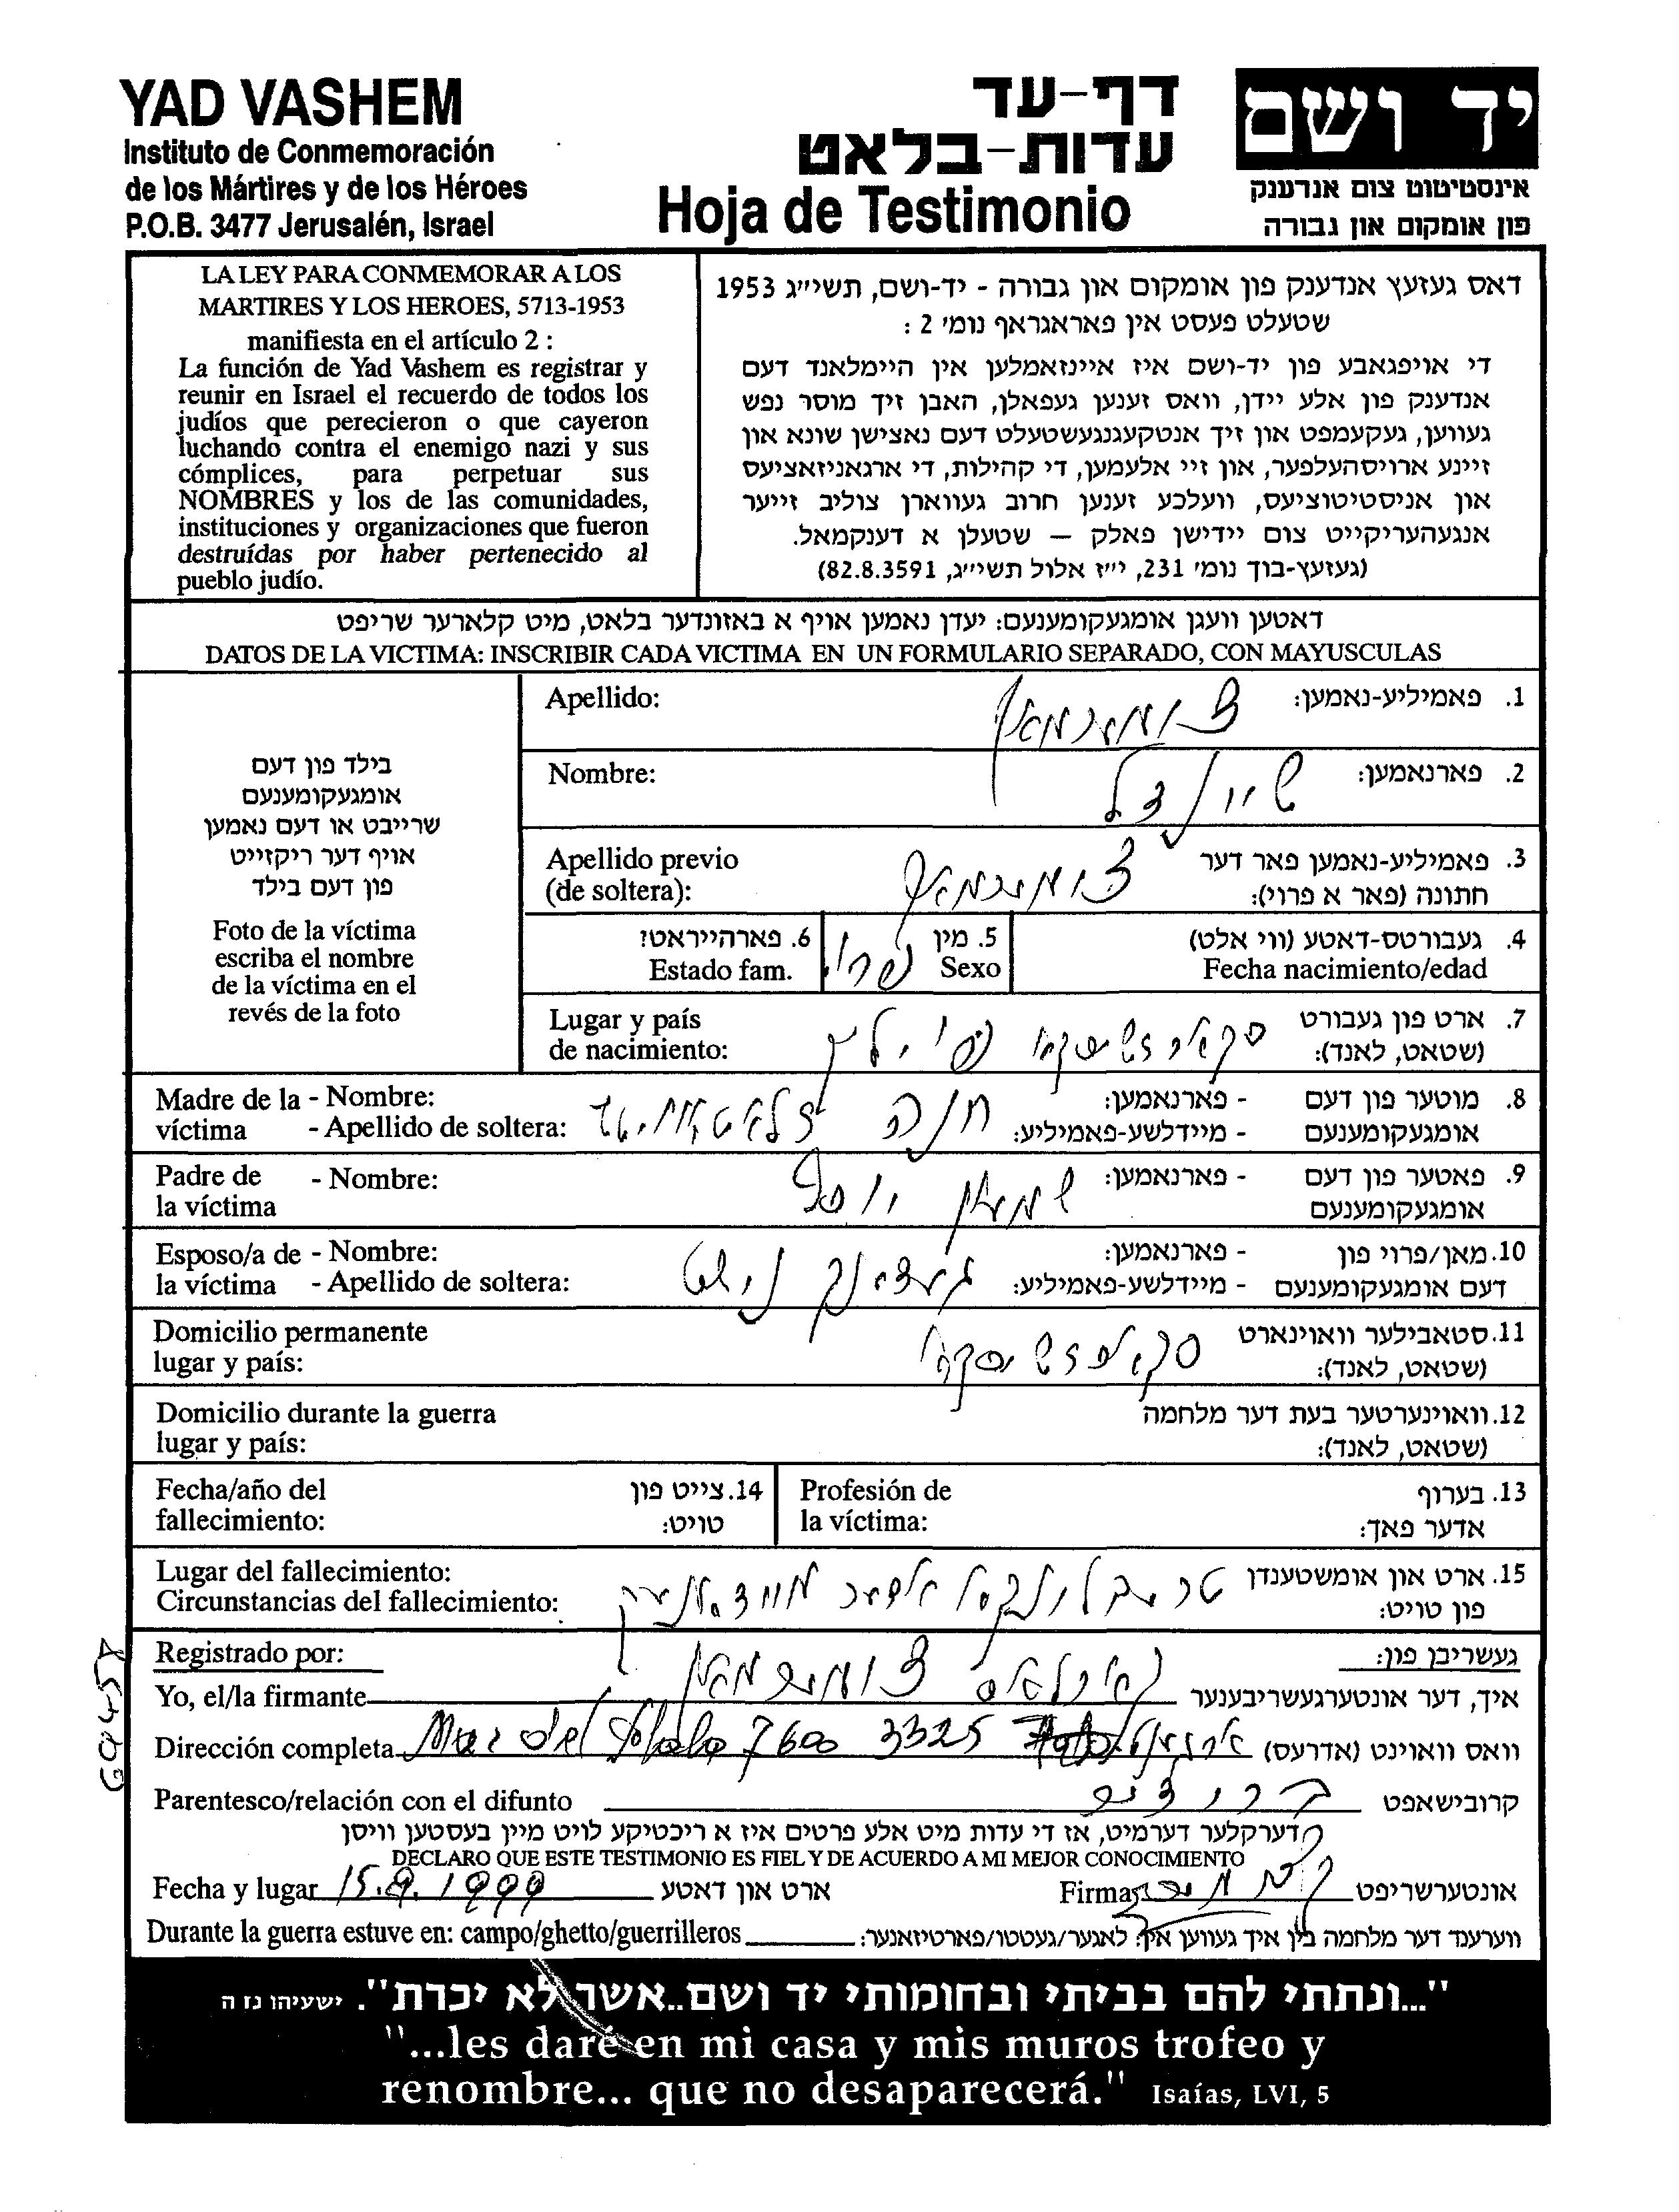 YAD VASHEM
Instituto de Conmemoración
de los Mártires y de los Héroes
P.O.B. 3477 Jerusalén, Israel
דף-עד
עדות-בלאט
Hoja de Testimonio
יד ושם
אינסטיטוט צום אנדענק
פון אומקום און גבורה
LA LEY PARA CONMEMORAR A LOS
MARTIRES Y LOS HEROES, 5713-1953
manifiesta en el artículo 2 :
La función de Yad Vashem es registrar y
reunir en Israel el recuerdo de todos los
judíos que perecieron o que cayeron
luchando contra el enemigo nazi y sus
cómplices, para perpetuar sus
NOMBRES y los de las comunidades,
instituciones y organizaciones que fueron
destruídas por haber pertenecido al
pueblo judío.
דאס געזעץ אנדענק פון אומקום און גבורה - יד-ושם, תשי״ג 1953
שטעלט פעסט אין פאראגראף נומ׳ 2 :
די אויפגאבע פון יד-ושם איז איינזאמלען אין היימלאנד דעם
אנדענק פון אלע יידן, וואס זענען געפאלן, האבן זיך מוסר נפש
געווען, געקעמפט און זיך אנטקעגנגעשטעלט דעם נאצישן שונא און
זיינע ארויסהעלפער, און זיי אלעמען, די קהילות, די ארגאניזאציעס
און אניסטיטוציעס, וועלכע זענען חרוב געווארן צוליב זייער
אנגעהעריקייט צום יידישן פאלק — שטעלן א דענקמאל.
(געזעץ-בוך נומ׳ 231, י״ז אלול תשי״ג, 82.8.3591)
דאטען וועגן אומגעקומענעם: יעדן נאמען אויף א באזונדער בלאט, מיט קלארער שריפט
DATOS DE LA VICTIMA: INSCRIBIR CADA VICTIMA EN UN FORMULARIO SEPARADO, CON MAYUSCULAS
בילד פון דעם
אומגעקומענעם
שרייבט או דעם נאמען
אויף דער ריקזייט
פון דעם בילד
Foto de la víctima
escriba el nombre
de la víctima en el
revés de la foto
1. פאמיליע-נאמען: צוקערמאן Apellido:
2. פארנאמען: שיינדל Nombre:
3. פאמיליע-נאמען פאר דער Apellido previo
חתונה (פאר א פרוי): צוקערמאן (de soltera):
4. געבורטס-דאטע (ווי אלט) 5. מין 6. פארהייראט?
Fecha nacimiento/edad Sexo פרוי Estado fam.
7. ארט פון געבורט Lugar y país
(שטאט, לאנד): פוילן de nacimiento:
8. מוטער פון דעם - פארנאמען: חנה Madre de la - Nombre:
אומגעקומענעם - מיידלשע-פאמיליע: víctima - Apellido de soltera:
9. פאטער פון דעם - פארנאמען: שמעון יוסף Padre de - Nombre:
אומגעקומענעם la víctima
10. מאן/פרוי פון - פארנאמען: Esposo/a de - Nombre:
דעם אומגעקומענעם - מיידלשע-פאמיליע: la víctima - Apellido de soltera:
11. סטאבילער וואוינארט Domicilio permanente
(שטאט, לאנד): lugar y país:
12. וואוינערטער בעת דער מלחמה Domicilio durante la guerra
(שטאט, לאנד): lugar y país:
13. בערוף Profesión de 14. צייט פון Fecha/año del
אדער פאך: la víctima: טויט: fallecimiento:
15. ארט און אומשטענדן טרעבלינקא אדער מיידאנעק Lugar del fallecimiento:
פון טויט: Circunstancias del fallecimiento:
געשריבן פון: Registrado por:
איך, דער אונטערגעשריבענער צוקערמאן Yo, el/la firmante
וואס וואוינט (אדרעס) Mar del Plata 7600 3325 Dirección completa
קרובישאפט ברודער Parentesco/relación con el difunto
דערקלער דערמיט, אז די עדות מיט אלע פרטים איז א ריכטיקע לויט מיין בעסטען וויסן
DECLARO QUE ESTE TESTIMONIO ES FIEL Y DE ACUERDO A MI MEJOR CONOCIMIENTO
Fecha y lugar 15.9.1999 ארט און דאטע Firma אונטערשריפט
Durante la guerra estuve en: campo/ghetto/guerrilleros ווערענד דער מלחמה בין איך געווען אין: לאגער/געטטו/פארטיזאנער:
69458
"...ונתתי להם בביתי ובחומותי יד ושם..אשר לא יכרת". ישעיהו נז ה
"...les daré en mi casa y mis muros trofeo y
renombre... que no desaparecerá." Isaías, LVI, 5